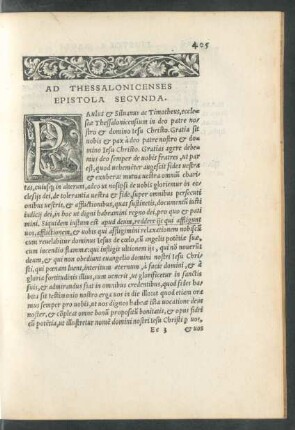 405
AD THESSALONICENSES
EPISTOLA SECVNDA.
PAulus & Siluanus ac Timotheus, eccle-
siæ Thessalonicensium in deo patre no-
stro & domino Iesu Christo. Gratia sit
nobis & pax à deo patre nostro & do-
mino Iesu Christo. Gratias agere debe-
mus deo semper de uobis fratres, ut par
est, quod uehementer augescit fides uestra
& exuberat mutua uestra omnium chari-
tas, cuiusque in alterum, adeo ut nosipsi de uobis gloriemur in eccle-
sijs dei, de tolerantia uestra & fide, super omnibus persecuti
onibus uestris, & afflictionibus, quas sustinetis, documentū iusti
iudicij dei, in hoc ut digni habeamini regno dei, pro quo & pati
mini. Siquidem iustum est apud deum, reddere iis qui affligunt
uos, afflictionem, & uobis qui affligimini relaxationem nobiscū
cum reuelabitur dominus Iesus de cœlo, cū angelis potētiæ suæ,
cum incendio flammæ qui infligat ultionem iis, qui nō nouerūt
deum, & qui non obediunt euangelio domini nostri Iesu Chri-
sti, qui pœnam luent, interitum æternum, à facie domini, & à
gloria fortitudinis illius, cum uenerit, ut glorificetur in sanctis
suis, & admirandus fiat in omnibus credentibus, quod fides ha-
bita sit testimonio nostro erga uos in die illo: ad quod etiam ora
mus semper pro uobis, ut uos dignos habeat ista uocatione deus
noster, & cōpleat omne bonū propositū bonitatis, & opus fidei
cū potētia, ut illustretur nomē domini nostri Iesu Christi p uos,
Ee 3 & uos